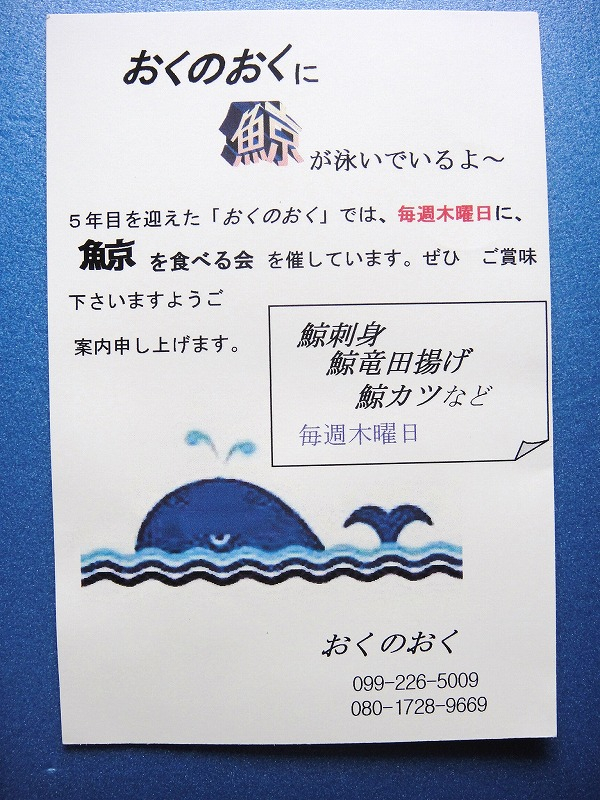 おくのおくに
鯨が泳いでいるよ～
５年目を迎えた「おくのおく」では、毎週木曜日に、
鯨を食べる会 を催しています。ぜひ　ご賞味
下さいますようご
案内申し上げます。
鯨刺身
鯨竜田揚げ
鯨カツなど
毎週木曜日
おくのおく
099-226-5009
080-1728-9669